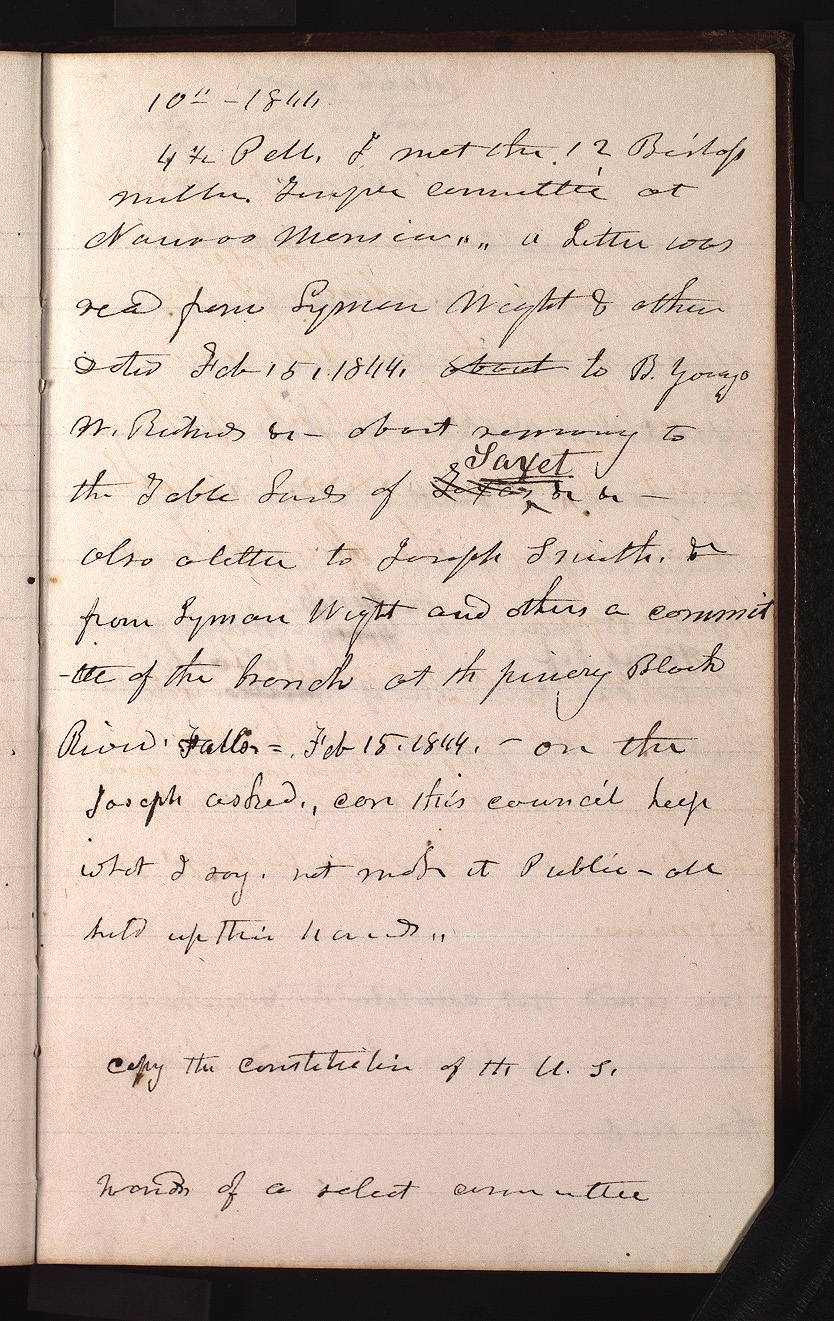 10th - 1844
4 ½ P.M. I met the 12 Bishop
miller. Temple committe at
Nauvoo Mansion,, ,, a Letter was
read from Lyman Wight & other
dated Feb 15, 1844. about to B. Young
W. Richards &c - about removing to
the Table Lands of Texas Saxet &c &c -
also a letter to Joseph Smith. &c
from Lyman Wight and others a commit
-tee of the branch at th pinery Black
River. Falls = Feb 15. 1844. - on the
Joseph asked., can this council keep
what I say. not make it Public - all
held up their hands,,
copy the constitution of th U. S.
hands of a select committee